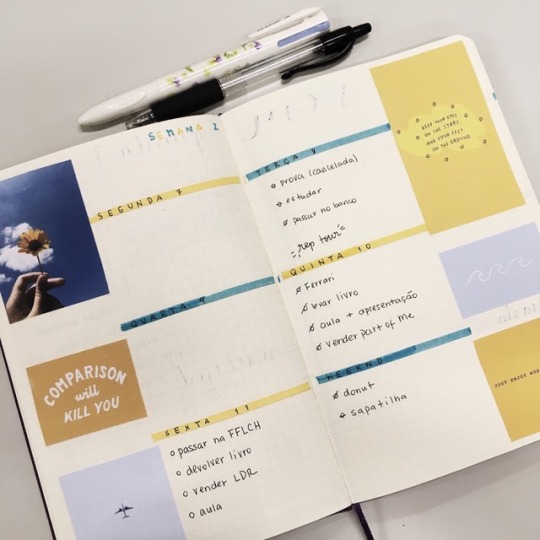 SEMANA 2
SEGUNDA 7
QUARTA 9
COMPARISON
will
KILL YOU
SEXTA 11
passar na FFLCH
devolver livro
vender LDR
aula
TERÇA 8
prova (cancelada)
estudar
passar no banco
rep tour
QUINTA 10
Ferrari
levar livro
aula + apresentação
vender part of me
WEEKND
donut
sapatilha
KEEP YOUR EYES
ON THE STARS
AND YOUR FEET
ON THE GROUND
JUST ENJOY